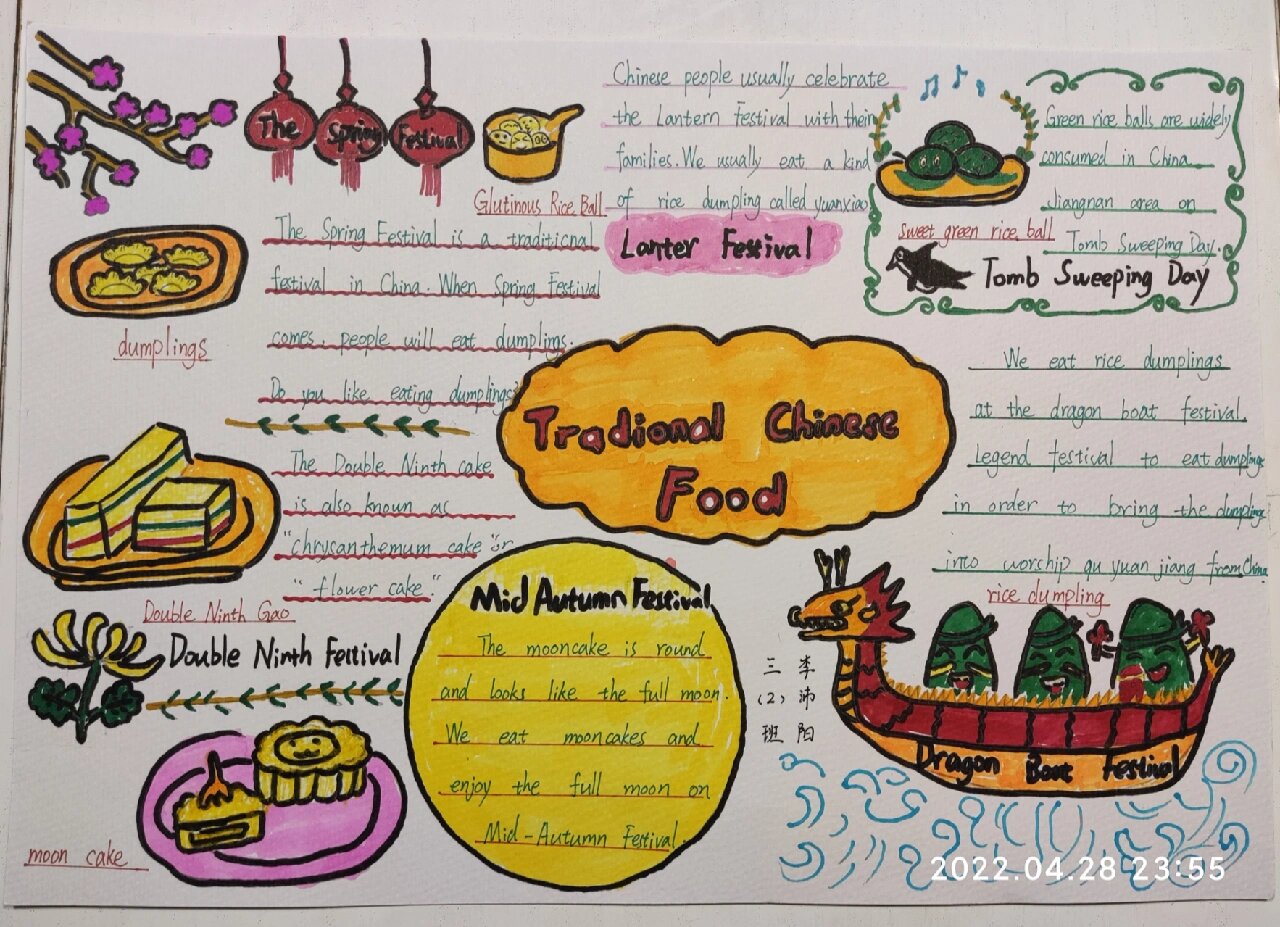 The Spring Festival
Glutinous Rice Ball
The Spring Festival is a traditional
festival in China. When Spring Festival
comes, people will eat dumplings.
Do you like eating dumplings?
dumplings
Chinese people usually celebrate
the Lantern Festival with their
families. We usually eat a kind
of rice dumpling called yuanxiao
Lanter Festival
Green rice balls are widely
consumed in China
Jiangnan area on
Tomb Sweeping Day.
sweet green rice ball
Tomb Sweeping Day
Tradional Chinese
Food
We eat rice dumplings
at the dragon boat festival.
Legend festival to eat dumplings
in order to bring the dumplings
into worship qu yuan jiang from China
rice dumpling
The Double Ninth cake
is also known as
"chrysanthemum cake" or
"flower cake".
Double Ninth Gao
Double Ninth Festival
Mid Autumn Festival
The mooncake is round
and looks like the full moon.
We eat mooncakes and
enjoy the full moon on
Mid-Autumn Festival.
moon cake
三(2)班
李沛阳
Dragon Boat Festival
2022.04.28 23:55